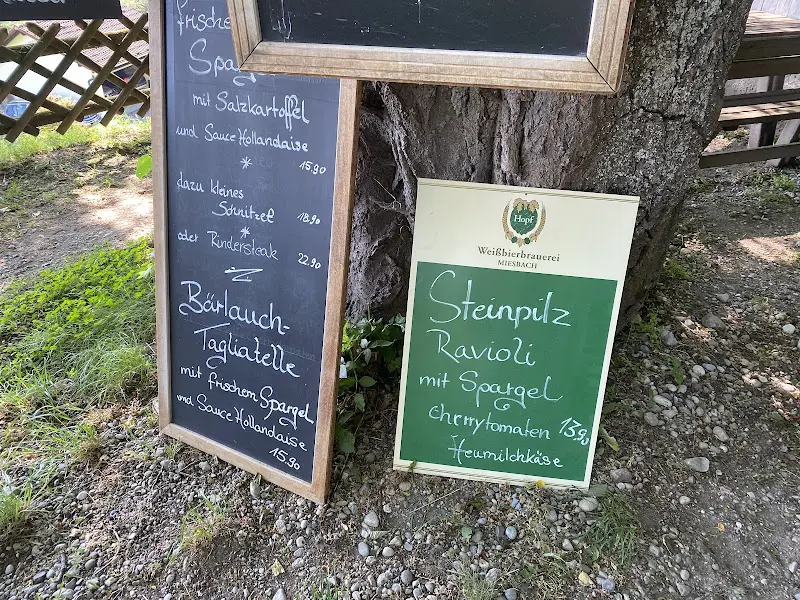 frische
Spargel
mit Salzkartoffel
und Sauce Hollandaise
15.90
dazu kleines
Schnitzel 18.90
oder Rindersteak
22.90
Bärlauch-
Tagliatelle
mit frischem Spargel
und Sauce Hollandaise
15.90
Hopf
Weißbierbrauerei
MIESBACH
Steinpilz
Ravioli
mit Spargel
Cherrytomaten 13.90
Heumilchkäse